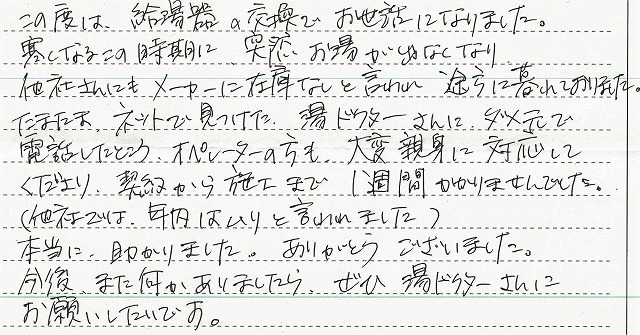 この度は、給湯器の交換でお世話になりました。
寒くなるこの時期に、突然お湯が出なくなり
他社さんにもメーカーに在庫なしと言われ途方に暮れておりました。
たまたま、ネットで見つけた、湯ドクターさんに、ダメ元で
電話したところ、オペレーターの方も、大変親身に対応して
くださり、契約から施工まで1週間かかりませんでした。
(他社では、年内はムリと言われました)
本当に、助かりました。ありがとうございました。
今後、また何かありましたら、ぜひ湯ドクターさんに
お願いしたいです。